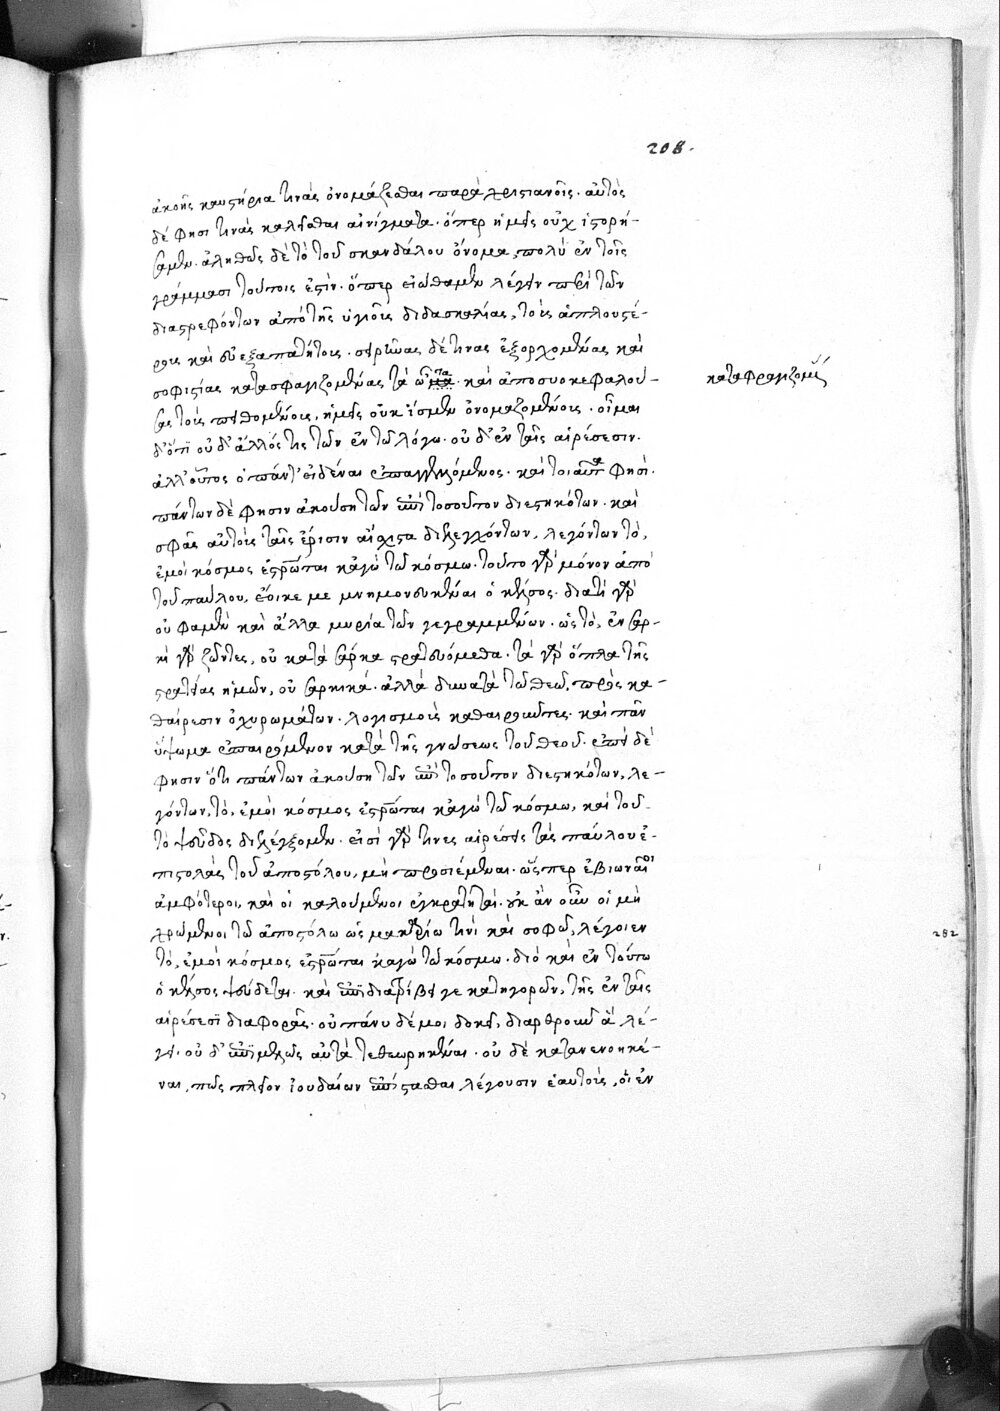 208.
ἀκοῆς καυστήρια τινὰς ὀνομάζεσθαι παρὰ χριστιανοῖς. αὐτὸς
δέ φησί τινὰς καλεῖσθαι αἰνίγματα. ὅπερ ἡμεῖς οὐχ ἱστορή-
σαμεν. ἀληθῶς δὲ τὸ τοῦ σκανδάλου ὄνομα πολὺ ἐν τοῖς
γράμμασι τούτοις ἐστίν. ὅπερ εἰώθαμεν λέγειν περὶ τῶν
διαστρεφόντων ἀπὸ τῆς ὑγιοῦς διδασκαλίας, τοὺς ἁπλουστέ-
ρους καὶ εὐεξαπατήτους. σειρῆνας δέ τινας ἐξορχουμένας καὶ
σοφιστρίας κατασφαγιζομένας τὰ ὦτα. καὶ ἀποσυοκεφαλού-
κατασφραγιζομένας
σας τοὺς πειθομένους, ἡμεῖς οὐκ ἴσμεν ὀνομαζομένους. οἶμαι
δ' ὅτι οὐδ' ἄλλός τις τῶν ἐν τῷ λόγῳ. οὐδ' ἐν ταῖς αἱρέσεσιν.
ἀλλ' οὗτος ὁ πάντ' εἰδέναι ἐπαγγελλόμενος. καὶ τοιαῦτά φησί.
πάντων δέ φησιν ἀκούση τῶν ἐπὶ τοσοῦτον διεστηκότων. καὶ
σφᾶς αὐτοὺς ταῖς ἔρισιν αἴσχιστα διελεγχόντων, λεγόντων τὸ,
ἐμοὶ κόσμος ἐσταύρωται κἀγὼ τῷ κόσμῳ. τοῦτο γὰρ μόνον ἀπὸ
τοῦ παύλου, ἔοικε με μνημονευκέναι ὁ κέλσος. διατί γὰρ
οὐ φαμὲν καὶ ἄλλα μυρία τῶν γεγραμμένων. ὡς τὸ, ἐν σαρ-
κὶ γὰρ ζῶντες, οὐ κατὰ σάρκα στρατευόμεθα. τὰ γὰρ ὅπλα τῆς
στρατείας ἡμῶν, οὐ σαρκικά. ἀλλὰ δυνατὰ τῷ θεῷ, πρὸς κα-
θαίρεσιν ὀχυρωμάτων. λογισμοὺς καθαιροῦντες. καὶ πᾶν
ὕψωμα ἐπαιρόμενον κατὰ τῆς γνώσεως τοῦ θεοῦ. ἐπεὶ δέ
φησιν ὅτι πάντων ἀκούση τῶν ἐπὶ τοσοῦτον διεστηκότων, λε-
γόντων, τὸ, ἐμοὶ κόσμος ἐσταύρωται κἀγὼ τῷ κόσμῳ, καὶ τοῦ-
το ψεῦδος διελέγξομεν. εἰσὶ γάρ τινες αἱρέσεις τὰς παύλου ἐ-
πιστολὰς τοῦ ἀποστόλου, μὴ προσιέμεναι. ὥσπερ ἐβιωναῖοι
ἀμφότεροι, καὶ οἱ καλούμενοι ἐγκρατηταί. οὐκ ἂν οὖν οἱ μὴ
χρώμενοι τῷ ἀποστόλῳ ὡς μακαρίῳ τινὶ καὶ σοφῷ, λέγοιεν
282
τὸ, ἐμοὶ κόσμος ἐσταύρωται κἀγὼ τῷ κόσμῳ. διὸ καὶ ἐν τούτῳ
ὁ κέλσος ψεύδεται. καὶ ἐπιδιατρίβει γε κατηγορῶν, τῆς ἐν ταῖς
αἱρέσεσι διαφορᾶς. οὐ πάνυ δέ μοι δοκεῖ, διαρθροῦν ἃ λέ-
γει. οὐδ' ἐπιμελῶς αὐτὰ τεθεωρηκέναι. οὐδὲ κατανενοηκέ-
ναι, πῶς πλέον ἰουδαίων ἐπίστασθαι, λέγουσιν ἑαυτοὺς, οἱ ἐν